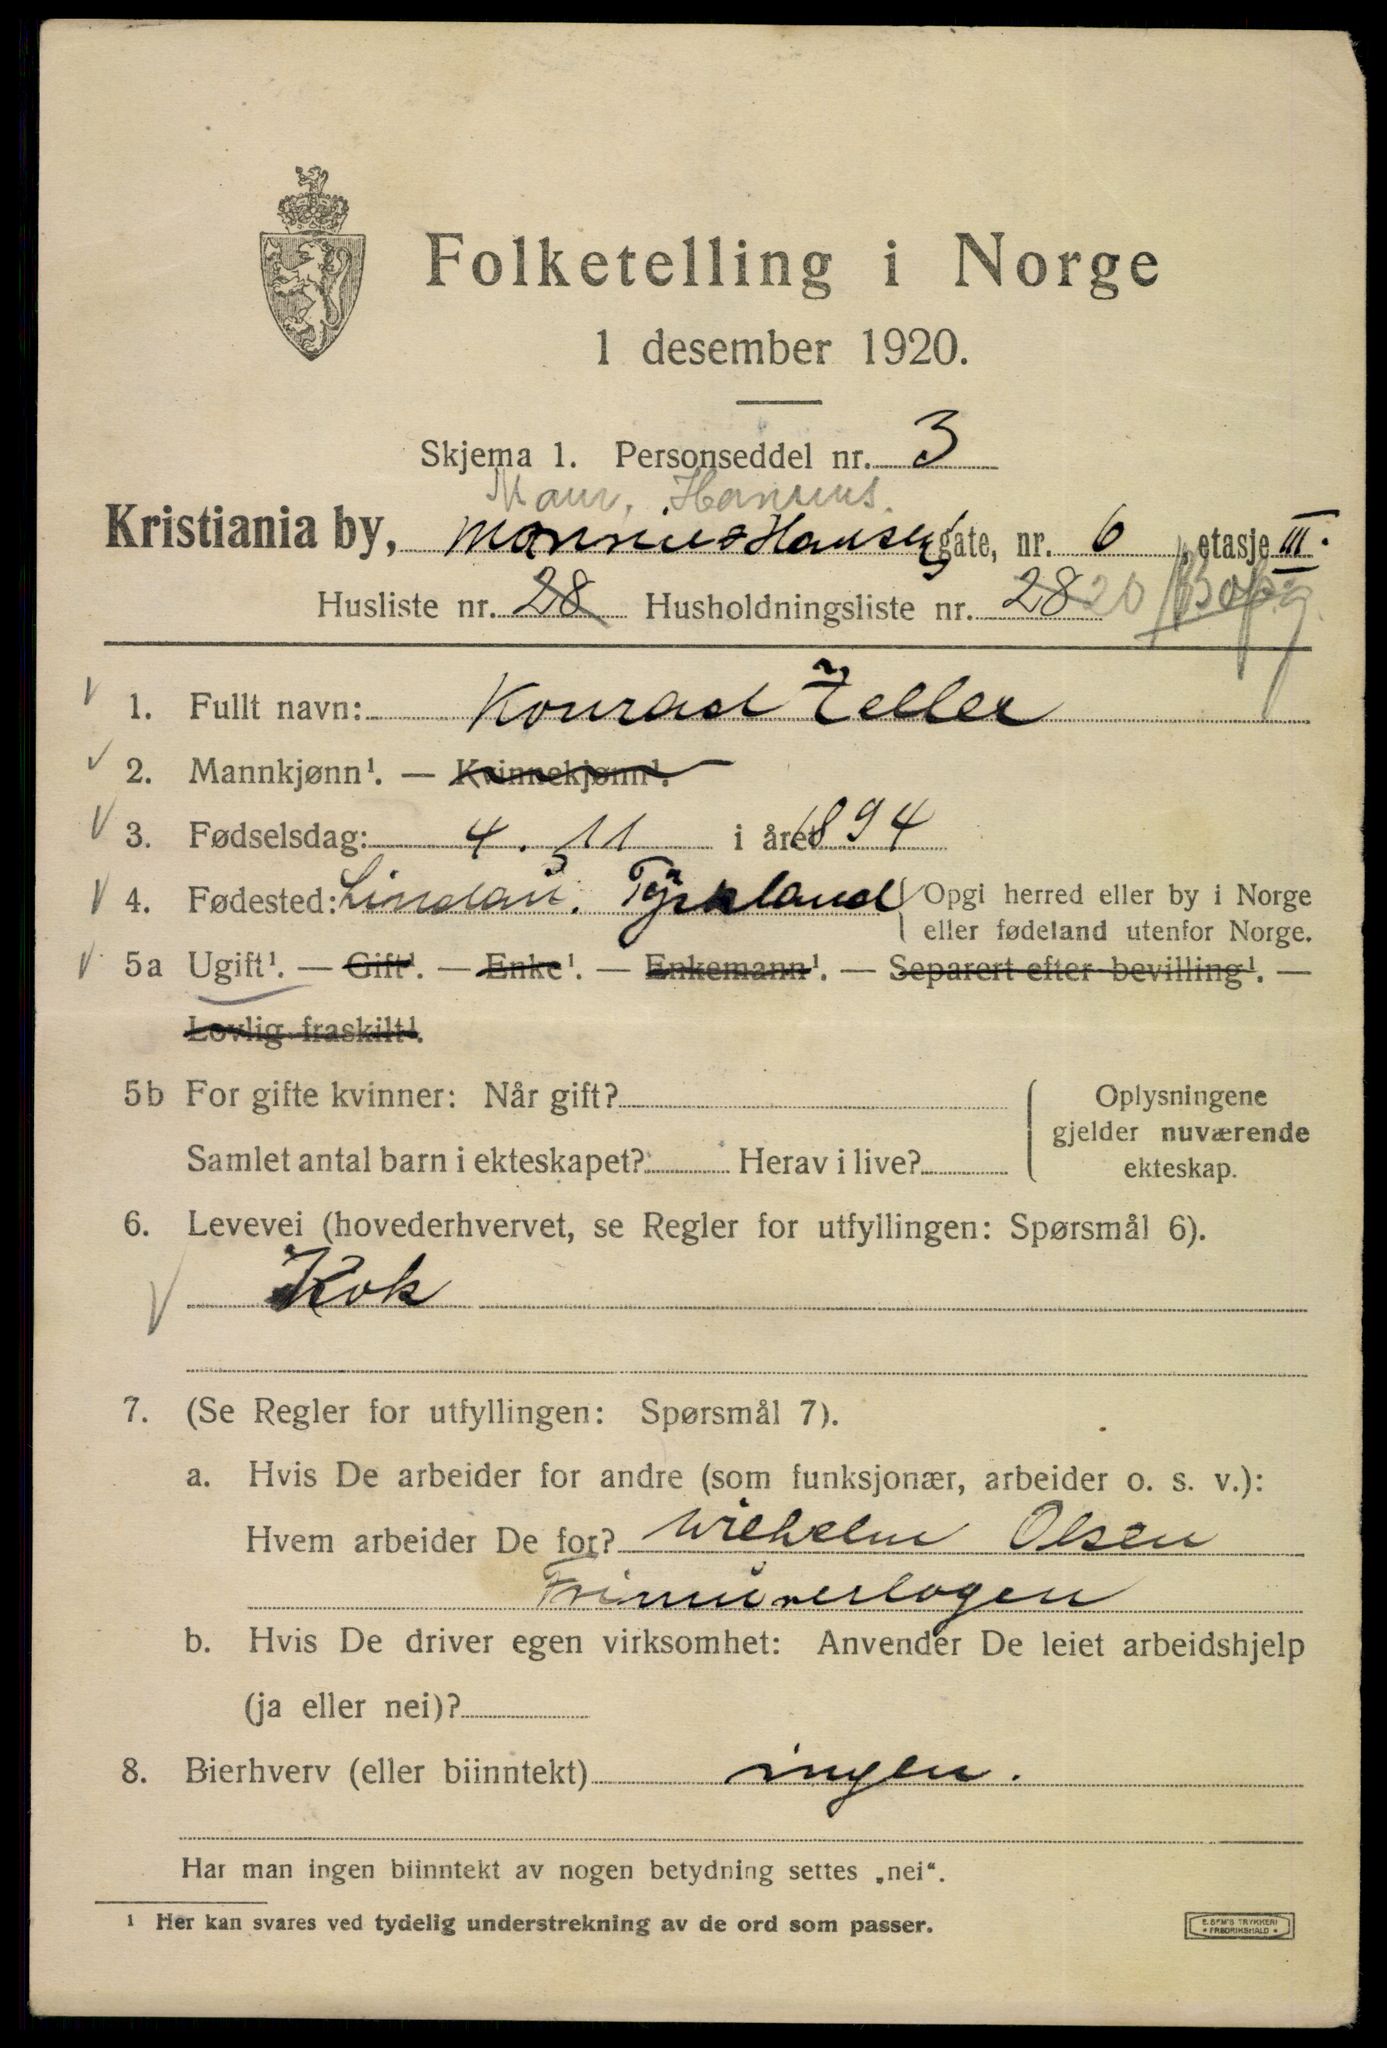 Folketelling i Norge
1 desember 1920.
Skjema 1. Personseddel nr. 3
Maur. Hansens.
Kristiania by, Mauritius Hansens gate, nr. 6, etasje III.
Husliste nr. 28 Husholdningsliste nr. 28 20
1. Fullt navn: Konrad Zeller
2. Mannkjønn¹. — Kvinnekjønn¹.
3. Fødselsdag: 4. 11 i året 1894
4. Fødested: Lindau. Tyskland Opgi herred eller by i Norge
eller fødeland utenfor Norge.
5a Ugift¹. — Gift¹. — Enke¹. — Enkemann¹. — Separert efter bevilling¹. —
Lovlig fraskilt¹.
5b For gifte kvinner: Når gift? Oplysningene
gjelder nuværende
Samlet antal barn i ekteskapet? Herav i live? ekteskap.
6. Levevei (hovederhvervet, se Regler for utfyllingen: Spørsmål 6).
Kok
7. (Se Regler for utfyllingen: Spørsmål 7).
a. Hvis De arbeider for andre (som funksjonær, arbeider o. s. v.):
Hvem arbeider De for? Wilhelm Olsen
Frimurerlogen
b. Hvis De driver egen virksomhet: Anvender De leiet arbeidshjelp
(ja eller nei)?
8. Bierhverv (eller biinntekt) ingen.
Har man ingen biinntekt av nogen betydning settes „nei“.
¹ Her kan svares ved tydelig understrekning av de ord som passer.
E. SEM'S TRYKKERI
FREDRIKSHALD